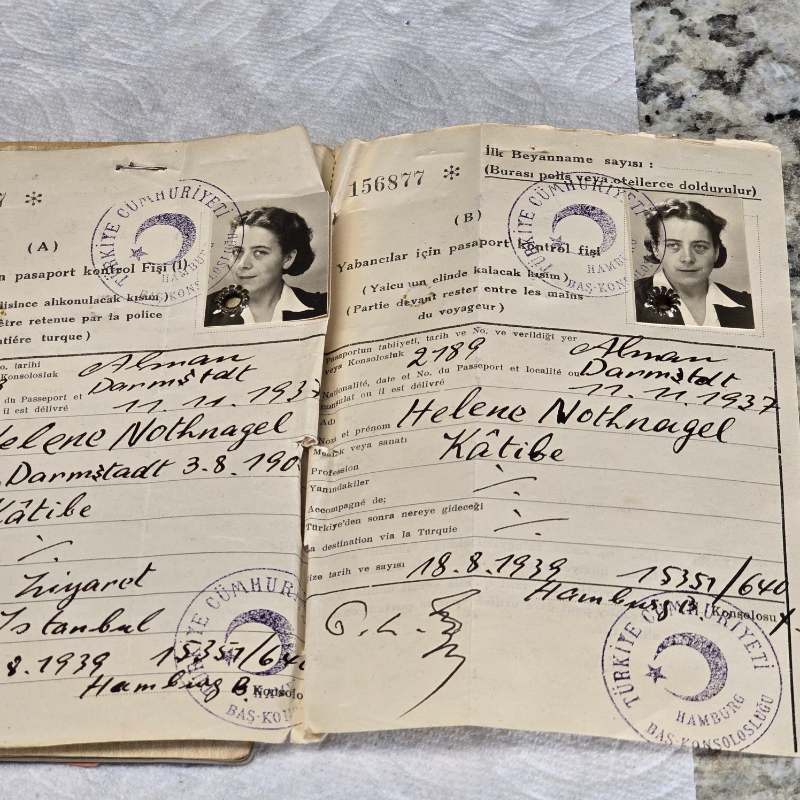 7 *
(A)
n pasaport kontrol Fişi (I)
lisince alıkonulacak kısım)
être retenue par la police
tiére turque)
o. tarihi
Konsolosluk
du Passeport et
il est délivré
Alman
Darmştdt
11.11.1937
Helene Nothnagel
Darmstadt 3.8.190
Kâtibe
·/.
Ziyaret
Istanbul
8.1939 15351/640
Hamburg B. Konsolo
TÜRKİYE CÜMHURİYETİ
HAMBURG
BAŞ-KONSOLOSLUĞU
TÜRKİYE CÜMHUR
BAŞ-KON
156877 *
İlk Beyanname sayısı :
(Burası polis veya otellerce doldurulur)
(B)
Yabancılar için pasaport kontrol fişi
(Yalcu un elinde kalacak kısım)
(Partie devant rester entre les mains
du voyageur)
TÜRKİYE CÜMHURİYETİ
HAMBURG
BAŞ-KONSOLOSLUĞU
Pasaportun tabliyeti, tarih ve No. ve verildiği yer
veya Konsolosluk 2189 Alman
Nationalité, date et No. du Passeport et localité ou Darmştdt
consulat ou il est délivré 11.11.1937
Adı
Nom et prénom Helene Nothnagel
Meslek veya sanatı
Profession Kâtibe
Yanındakiler
Accompagné de; ·/.
Türkiye'den sonra nereye gideceği
La destination via la Turquie ·/.
ize tarih ve sayısı 18.8.1939 15351/640
Hamburg B. Konsolosu
TÜRKİYE CÜMHURİYETİ
HAMBURG
BAŞ-KONSOLOSLUĞU